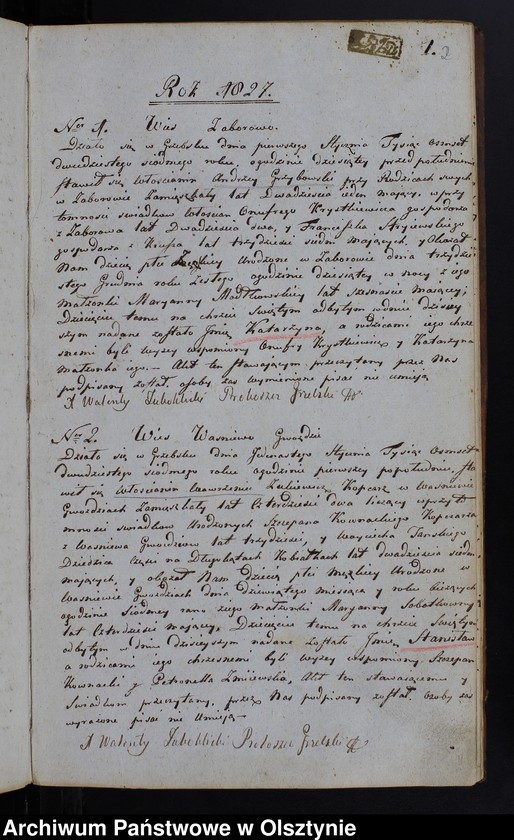 1. 2
Rok 1827.
Nro 1. Wieś Zaborowo.
Działo się w Grzebsku dnia pierwszego Stycznia Tysiąc osmset
dwudziestego siodmego roku, ogodzinie dziesiątey przed południem
stawił się włościanin Andrzey Grzybowski przy Rodzicach swych
w Zaborowie Zamieszkały lat Dwadzieścia ieden maiący, w przy
tomności swiadkow włoscian Onufrego Krystkiewica gospodarza
z Zaborowa lat Dwadzieścia dwa, y Franciszka
gospodarza z Krusza lat trzydzieści siedm maiących, y Okazał
Nam dziecię płci Zenskiey Urodzone w Zaborowie dnia trzydzie
stego Grudnia roku Zeszłego ogodzinie dziesiątey w nocy z iego
małzonki Maryanny lat szesnascie maiącey;
Dziecięciu temu na chrzcie Swiętym odbytym wdniu dzisiey
szym nadane zostało Jmię Katarzyna, a rodzicami iego chrze
snemi byli wyzey wspomniony Onufry Krystkiewicz y Katarzyna
małzonka iego. – Akt ten stawaiącym przeczytany przez Nas
podpisany został osoby zas wymienione pisac nie umieią
X Walenty Proboszcz
Nro 2. Wieś Wasniewo Gwozdzie
Działo się w Grzebsku dnia Jedenastego Stycznia Tysiąc osmset
dwudziestego siodmego roku ogodzinie pierwszey popołudniu, sta
wił się włoscianin Wawrzeniec Kopcarz w Wasniewie
Gwozdziach Zamieszkały lat Czterdziesci dwa liczący w przyt
mnosci swiadkow Urodzonych Szczepana Kownackiego Kopczarza
z Wasniewa Gwozdziewo lat trzydziesci, y Woyciecha Tanskiego
Dziedzica części na Długokątach Kobiałkach lat dwadziescia siedm
maiących, y okazał Nam Dziecię płci Męzkiey Urodzone w
Wasniewie Gwozdziach dnia dziewiątego miesiąca y roku biezących
ogodzinie Siodmey rano z iego małzonki Maryanny
lat Czterdziesci maiącey, Dziecięciu temu na chrzcie Swiętym
odbytym wdniu dzisieyszym nadane zostało Jmię Stanisław
a rodzicami iego chrzesnemi byli wyzey wspomniony Szczepan
Kownacki y Petronella Zmiiewska, Akt ten stawaiącemu y
Swiadkom przeczytany, przez Nas podpisany został. osoby zas
wyrazone pisac nie umieią –
X Walenty Proboszcz
Archiwum Państwowe w Olsztynie